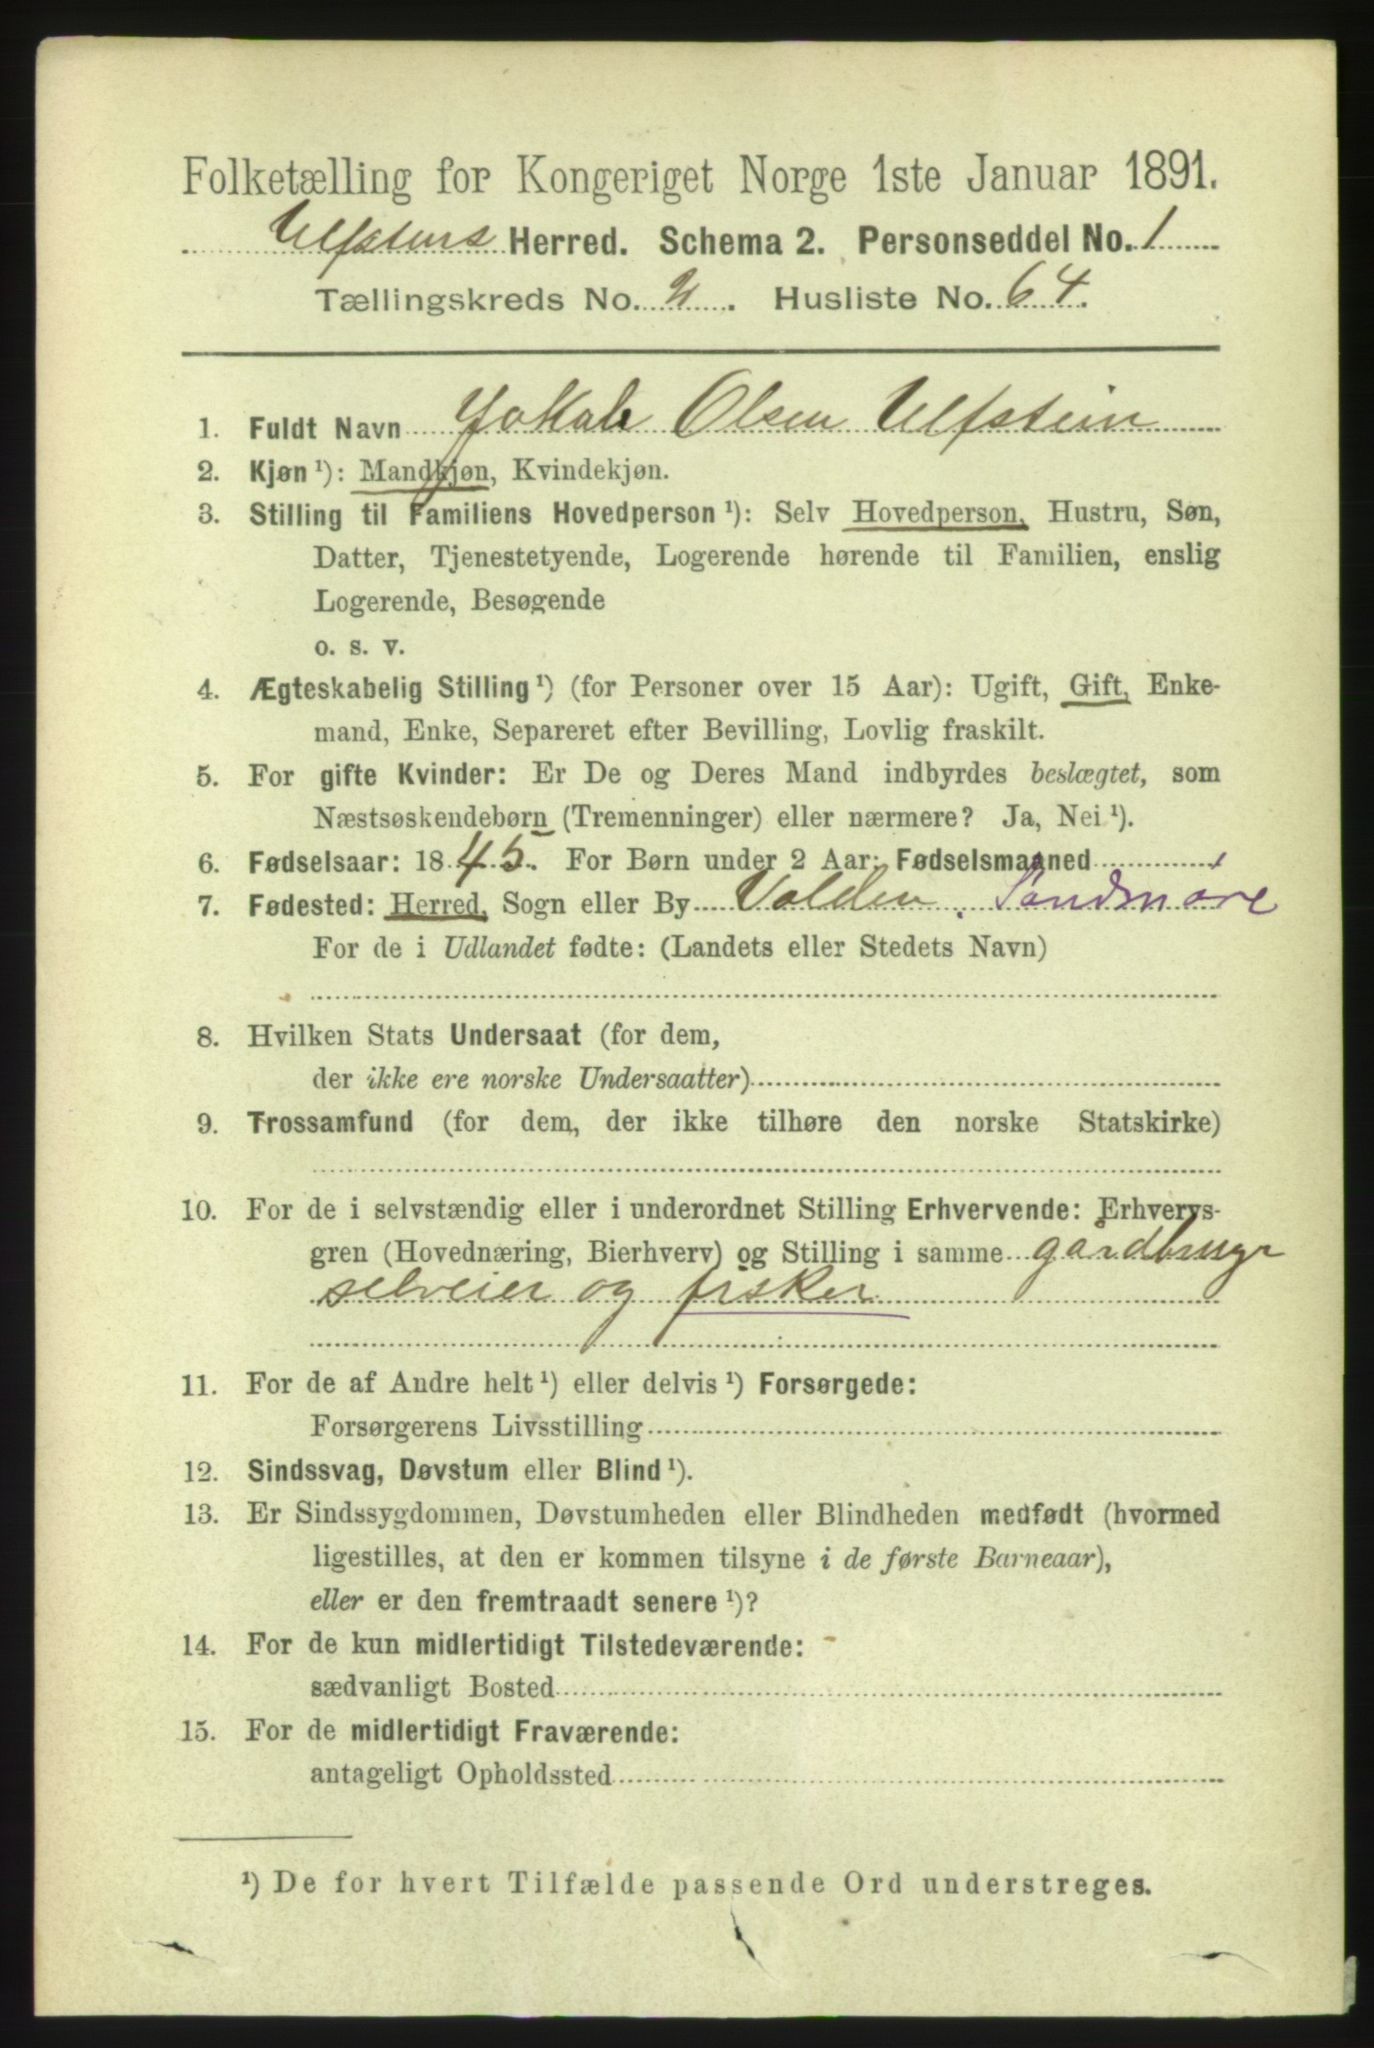 Folketælling for Kongeriget Norge 1ste Januar 1891.
Ulfstens Herred. Schema 2. Personseddel No. 1
Tællingskreds No. 2. Husliste No. 64.
1. Fuldt Navn Jokab Olsen Ulfstein
2. Kjøn ¹): Mandkjøn, Kvindekjøn.
3. Stilling til Familiens Hovedperson ¹): Selv Hovedperson, Hustru, Søn,
Datter, Tjenestetyende, Logerende hørende til Familien, enslig
Logerende, Besøgende
o. s. v.
4. Ægteskabelig Stilling ¹) (for Personer over 15 Aar): Ugift, Gift, Enke-
mand, Enke, Separeret efter Bevilling, Lovlig fraskilt.
5. For gifte Kvinder: Er De og Deres Mand indbyrdes beslægtet, som
Næstsøskendebørn (Tremenninger) eller nærmere? Ja, Nei ¹).
6. Fødselsaar: 1845. For Børn under 2 Aar: Fødselsmaaned
7. Fødested: Herred, Sogn eller By Volden, Søndmøre
For de i Udlandet fødte: (Landets eller Stedets Navn)
8. Hvilken Stats Undersaat (for dem,
der ikke ere norske Undersaatter)
9. Trossamfund (for dem, der ikke tilhøre den norske Statskirke)
10. For de i selvstændig eller i underordnet Stilling Erhvervende: Erhvervs-
gren (Hovednæring, Bierhverv) og Stilling i samme gårdbruger
selveier og fisker
11. For de af Andre helt ¹) eller delvis ¹) Forsørgede:
Forsørgerens Livsstilling
12. Sindssvag, Døvstum eller Blind ¹).
13. Er Sindssygdommen, Døvstumheden eller Blindheden medfødt (hvormed
ligestilles, at den er kommen tilsyne i de første Barneaar),
eller er den fremtraadt senere ¹)?
14. For de kun midlertidigt Tilstedeværende:
sædvanligt Bosted
15. For de midlertidigt Fraværende:
antageligt Opholdssted
¹) De for hvert Tilfælde passende Ord understreges.